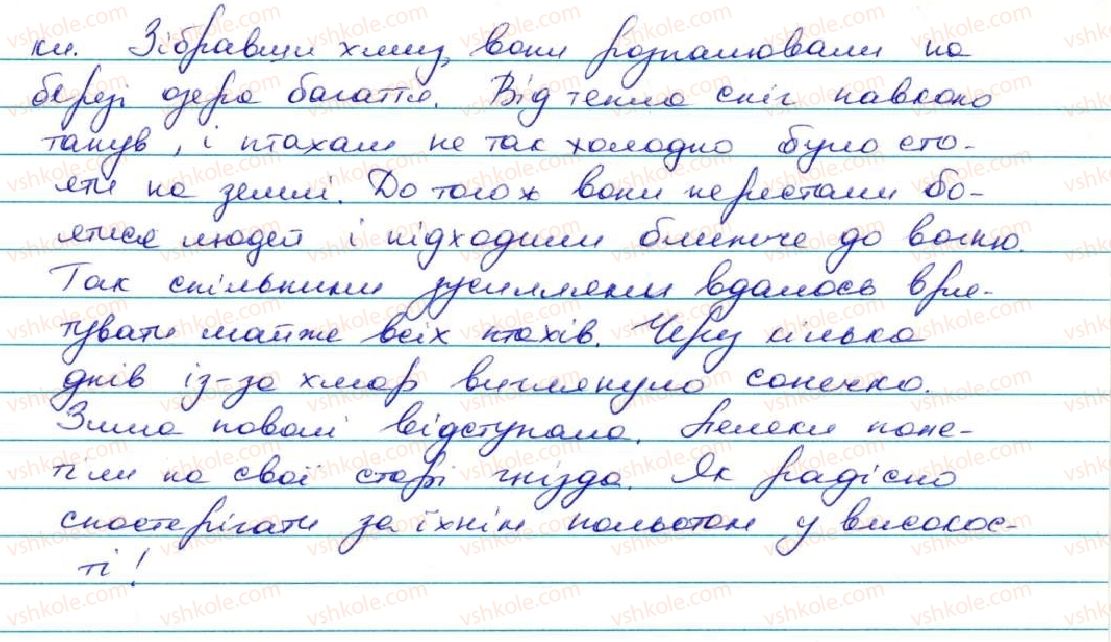 ки. Зібравши хмиз, вони розпалювали на
березі озера багаття. Від тепла сніг навколо
танув, і птахам не так холодно було сто-
яти на землі. До того ж вони перестали бо-
ятися людей і підходили ближче до вогню.
Так спільними зусиллями вдалось вря-
тувати майже всіх птахів. Через кілька
днів із-за хмар виглянуло сонечко.
Зима поволі відступала. Лелеки поле-
тіли на свої старі гнізда. Як радісно
спостерігати за їхнім польотом у високос-
ті!
vshkole.com